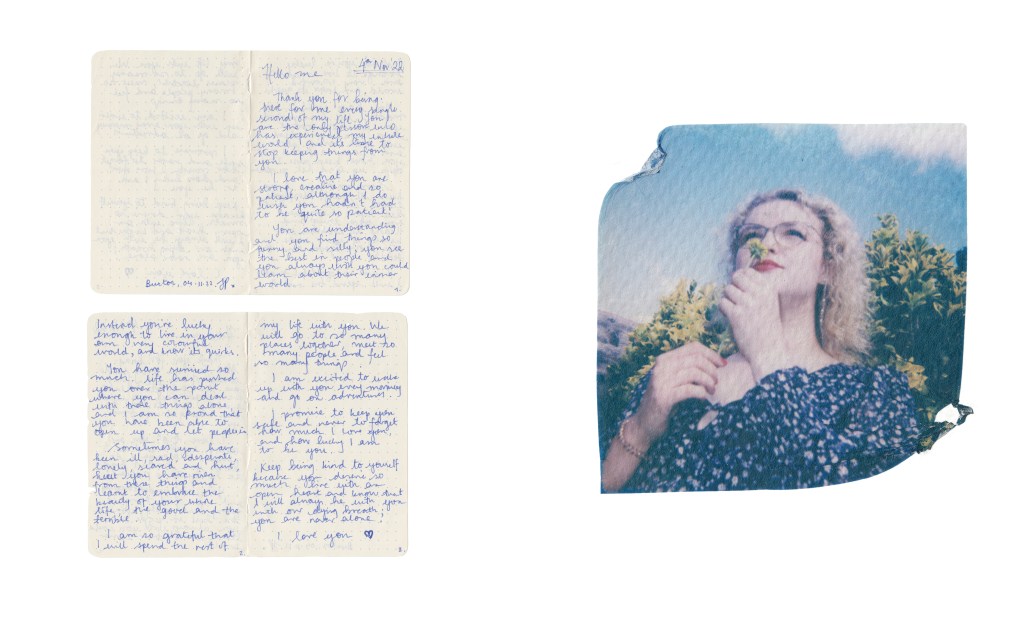 4th Nov '22
Hello me
Thank you for being
here for me every single
second of my life. You
are the only person who
has experienced my whole
world, and to
stop keeping things from
you.
I love that you are
strong, creative and so
patient, although I do
wish you hadn't had
to be quite so patient!
You are understanding
and you find things so
funny and silly, you see
the best in people and
you always wish you could
learn about their inner
world.
1.
04.11.22.
Instead you're lucky
enough to live in your
own very colourful
world, and know its quirks.
You have survived so
much. Life has pushed
you over the point
where you can deal
with those things alone
and I am so proud that
you have been able to
open up and let people in
Sometimes you have
been ill, sad, desperate,
lonely, scared and hurt,
but you have risen
from these things and
learnt to embrace the
beauty of your whole
life, the good and the
terrible.
I am so grateful that
I will spend the rest of
2.
my life with you. We
will go to so many
places together, meet so
many people and feel
so many things.
I am excited to wake
up with you every morning
and go on adventures.
I promise to keep you
safe and never to forget
how much I love you,
and how lucky I am
to be you.
Keep being kind to yourself
because you deserve so
much, live with an
open heart and know that
I will always be with you
until our dying breath;
you are never alone.
I love you ♥
3.